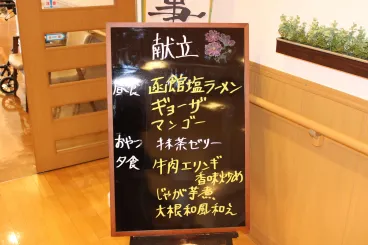 献立
昼食 函館塩ラーメン
ギョーザ
マンゴー
おやつ 抹茶ゼリー
夕食 牛肉エリンギ
香味炒め
じゃが芋煮
大根和風和え